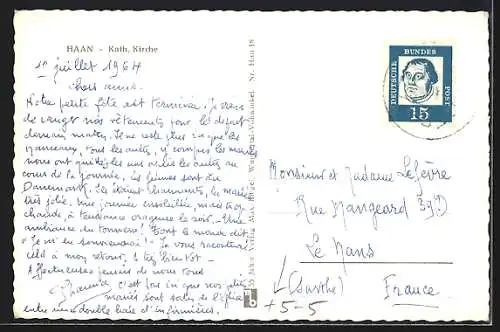 HAAN - Kath. Kirche
1er juillet 1964
Chers amis.
Notre petite fête est terminée. Je viens
de ranger nos vêtements pour le départ
demain matin. Il ne reste plus ici que les
Manceaux, tous les autres, y compris les mariés
nous ont quittés les uns après les autres au
cours de la journée, les jeunes sont au
Danemark. Ils étaient charmants, les mariés
très jolie. Une journée ensoleillée mais
chaude, à tendance orageuse le soir. Une
ambiance du tonnerre! Tout le monde dit
"Je m'en souviendrai!" Je vous raconterai
cela à mon retour, à très bientôt -
Affectueuses pensées de nous tous
c'est pas ici que nos
mariés sont sortis de l'église
entre une double haie d'infirmières!
DEUTSCHE BUNDES POST
15
Monsieur et Madame Lefèvre
Rue Mangeard
Le Mans
(Sarthe) France
+5-5